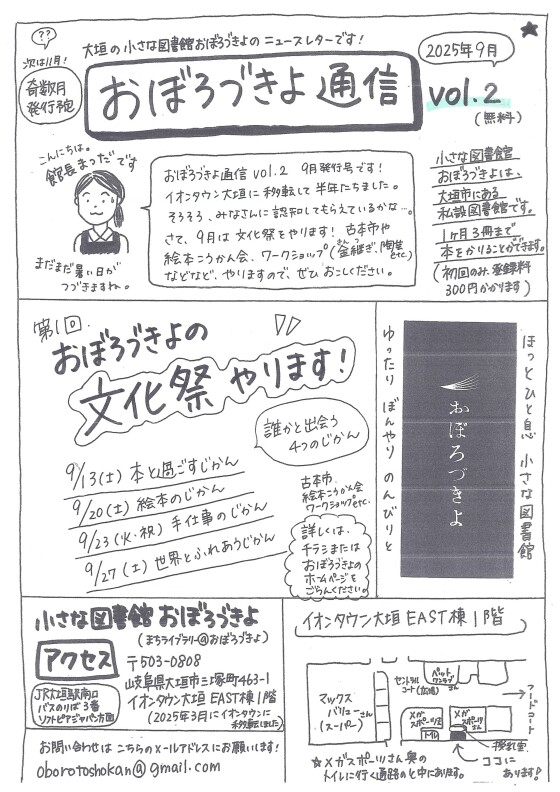 ??
次は11月!
奇数月
発行号
大垣の小さな図書館おぼろづきよのニュースレターです!
おぼろづきよ通信
2025年9月
vol.2
(無料)
こんにちは。
館長まつだです
まだまだ暑い日が
つづきますね。
おぼろづきよ通信 vol.2 9月発行号です!
イオンタウン大垣に移転して半年たちました。
そろそろ、みなさんに認知してもらえているかな…。
さて、9月は文化祭をやります! 古本市や
絵本こうかん会、ワークショップ(金継ぎ、陶芸etc.)
などなど、やりますので、ぜひおこしください。
小さな図書館
おぼろづきよは、
大垣市にある
私設図書館です。
1ヶ月3冊まで
本をかりることができます。
(初回のみ、登録料
300円かかります)
第1回
おぼろづきよの
文化祭 やります!
誰かと出会う
4つのじかん
9/13(土) 本と過ごすじかん
9/20(土) 絵本のじかん
9/23(火・祝) 手仕事のじかん
9/27(土) 世界とふれあうじかん
古本市、
絵本こうかん会
ワークショップetc.
詳しくは、
チラシまたは
おぼろづきよの
ホームページを
ごらんください。
ほっとひと息 小さな図書館
おぼろづきよ
ゆったり ぼんやり のんびりと
小さな図書館 おぼろづきよ
(まちライブラリー@おぼろづきよ)
アクセス
〒503-0808
岐阜県大垣市三塚町463-1
イオンタウン大垣 EAST棟1階
(2025年3月にイオンタウンに
移転しました)
JR大垣駅南口
バスのりば3番
ソフトピアジャパン方面
お問い合わせは こちらのメールアドレスにお願いします!
oborotoshokan@gmail.com
イオンタウン大垣 EAST棟1階
マックス
バリューさん
(スーパー)
セントラル
コート(広場)
ペット
ワンラブ
さん
→フードコート
メガ
スポーツさん
メガ
スポーツさん
授乳室
ココに
あります!
☆メガスポーツさん奥の
トイレに行く通路のと中にあります。